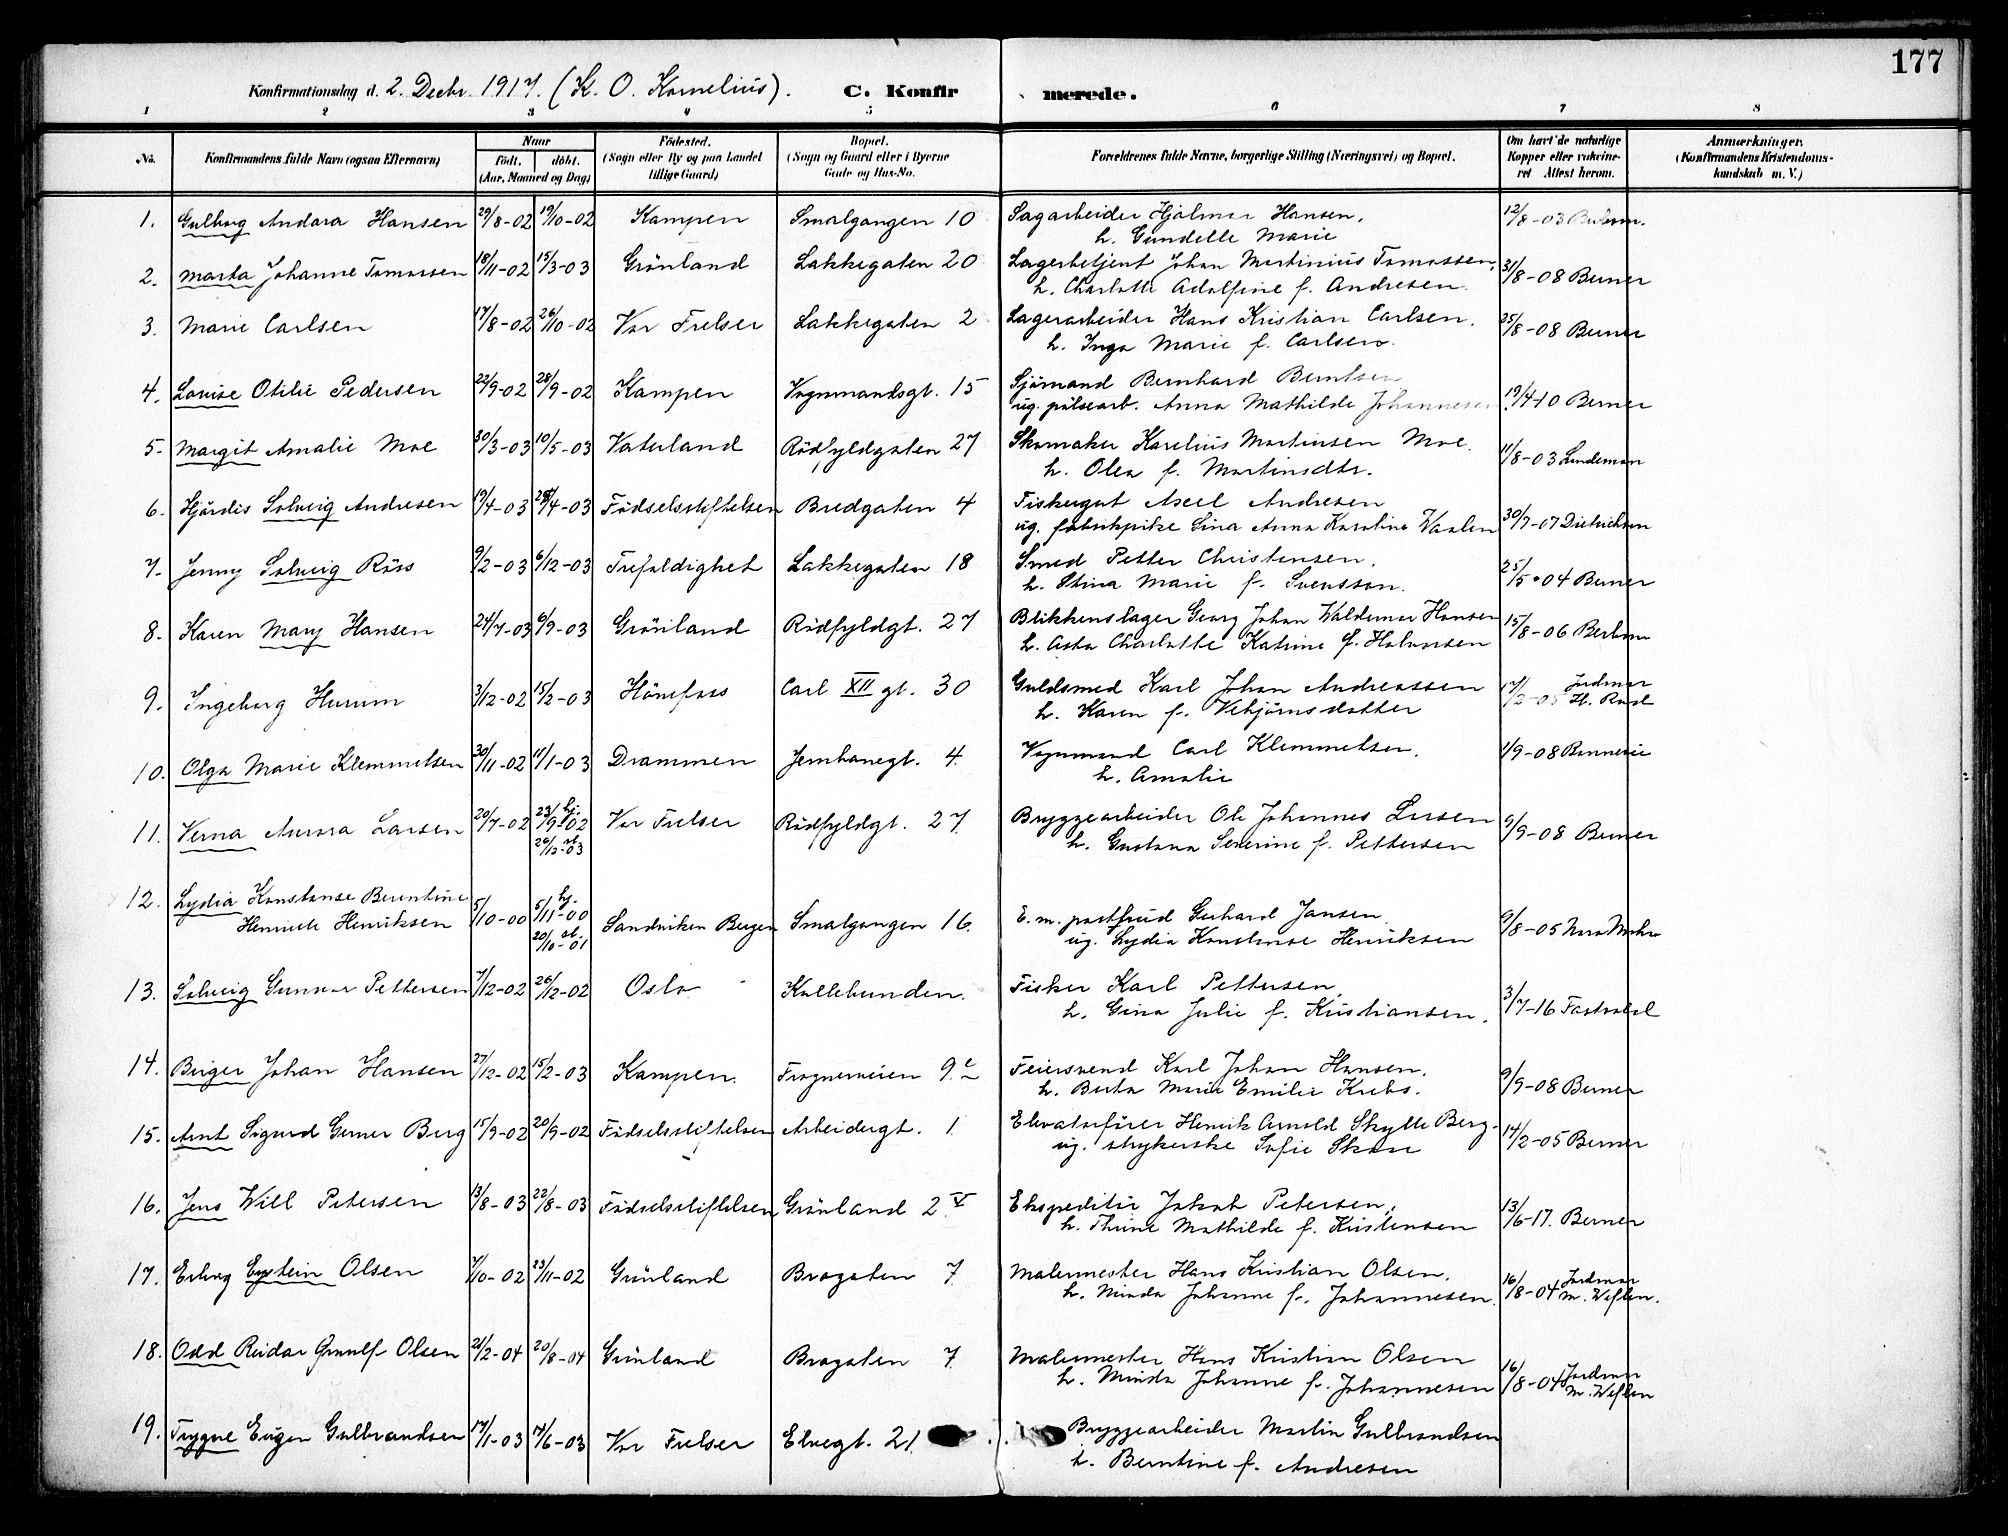 177
Konfirmationsdag d. 2. Decbr. 1917. (K. O. Kornelius). C. Konfir merede.
1 2 3 4 5 6 7 8
No. Konfirmandens fulde Navn (ogsaa Efternavn) Naar født. døbt. (Aar, Maaned og Dag) Fødested. (Sogn eller By og paa Landet tillige Gaard) Bopæl. (Sogn og Gaard eller i Byerne Gade og Hus-No. Forældrenes fulde Navne, borgerlige Stilling (Næringsvei) og Bopæl. Om havt de naturlige Kopper eller vakcineret Attest herom. Anmærkninger. (Konfirmandens Kristendomskundskab m. V.)
1. Gulborg Andora Hansen 29/8-02 19/10-02 Kampen Smalgangen 10 Sagarbeider Hjalmar Hansen, 12/8-03
h. Gundelle Marie
2. Marta Johanne Tomassen 18/11-02 15/3-03 Grönland Lakkegaten 20 Lagerbetjent Johan Martinius Tomassen, 31/8-08 Berner
h. Charlotte Adolfine f. Andresen.
3. Marie Carlsen 17/8-02 26/10-02 Vor Frelser Lakkegaten 2 Lagerarbeider Hans Kristian Carlsen. 25/8-08 Berner
h. Inga Marie f. Carlsen.
4. Lovise Otilie Pedersen 22/9-02 28/9-02 Kampen Vognmandsgt. 15 Sjömand Bernhard Berntsen 19/4-10 Berner
ug. pölsearb. Anna Mathilde Johannesen
5. Margit Amalie Moe 30/3-03 10/5-03 Vaterland Rödfyldgaten 27 Skomaker Karelius Martinsen Moe. 11/8-03 Lindeman
h. Olea f. Martinsdtr.
6. Hjördis Solveig Andresen 19/4-03 /4-03 Födselsstiftelsen Bredgaten 4 Fiskergut Axel Andresen 30/7-07 Dietrichson
ug. fabrikpike Lina Anna Karoline Vaalen
7. Jenny Solveig Röss 9/2-03 6/12-03 Trefoldighet Lakkegaten 18 Smed Petter Christensen. 25/5-04 Berner
h. Stina Marie f. Svensson.
8. Karen Mary Hansen 24/7-03 6/9-03 Grönland Rödfyldgt. 27 Blikkenslager Georg Johan Waldemar Hansen 15/8-06
h. Asta Charlotte Katrine f. Halvorsen
9. Ingeborg Hurum 3/12-02 15/2-03 Hönefoss Carl XII gt. 30 Guldsmed Karl Johan Andreassen 17/2-05 Jordmor
h. Karen f. Vebjörnsdatter
10. Olga Marie Klemmetsen 30/11-02 11/1-03 Drammen Jernbanegt. 4. Vognmand Carl Klemmetsen. 1/9-08
h. Amalie
11. Verna Aurora Larsen 20/7-02 23/9-02 hj. 26/12-03 st. Vor Frelser Rödfyldgt. 27. Bryggearbeider Ole Johannes Larsen 9/9-08 Berner
h. Gustava Severine f. Pettersen
12. Lydia Konstanse Berentine
Henriete Henriksen 5/10-00 5/11-00 hj. 20/10-01 st. Sandviken Bergen Smalgangen 16. E. m. Gerhard Jansen. 9/8-05
ug. Lydia Konstanse Henriksen
13. Solveig Gunvor Pettersen 7/12-02 26/12-02 Oslo Kallebunden. Fisker Karl Pettersen, 3/7-16
h. Gina Julie f. Kristiansen.
14. Birger Johan Hansen 27/12-02 15/2-03 Kampen. Frognerveien 9c Feiersvend Karl Johan Hansen. 9/9-08 Berner
h. Berta Marie Emilie Krebs.
15. Arnt Sigurd Gerner Berg 15/9-02 20/9-02 Födselsstiftelsen Arbeidergt. 1. Elevatorförer Henrik Arnold Skytte Berg 14/2-05 Berner
ug. strykerske Sofie Skau
16. Jens Will Petersen 13/8-03 22/8-03 Födselsstiftelsen Grönland 2 V Ekspeditör Jakob Petersen, 13/6-17. Berner
h. Thrine Mathilde f. Kristensen
17. Erling Eystein Olsen 7/10-02 23/11-02 Grönland Brogaten 7. Malermester Hans Kristian Olsen. 16/8-04 Jordmor
h. Minda Johanne f. Johannesen. M. Weflen.
18. Odd Reidar Olsen 21/2-04 20/8-04 Grönland Brogaten 7. Malermester Hans Kristian Olsen 16/8-04 Jordmor
h. Minda Johanne f. Johannesen M. Weflen
19. Trygve Eugen Gulbrandsen 17/1-03 14/6-03 Vor Frelser Elvegt. 21. Bryggearbeider Martin Gulbrandsen
h. Berntine f. Andresen